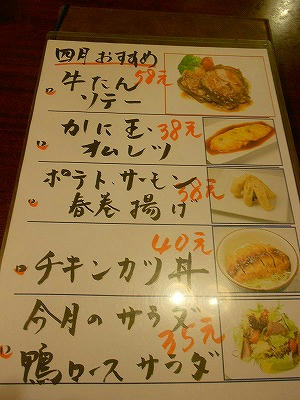 四月 おすすめ
牛たん 58元
ソテー
かに玉 38元
オムレツ
ポテト、サーモン 38元
春巻揚げ
40元
チキンカツ丼
今月のサラダ
35元
鴨ロースサラダ